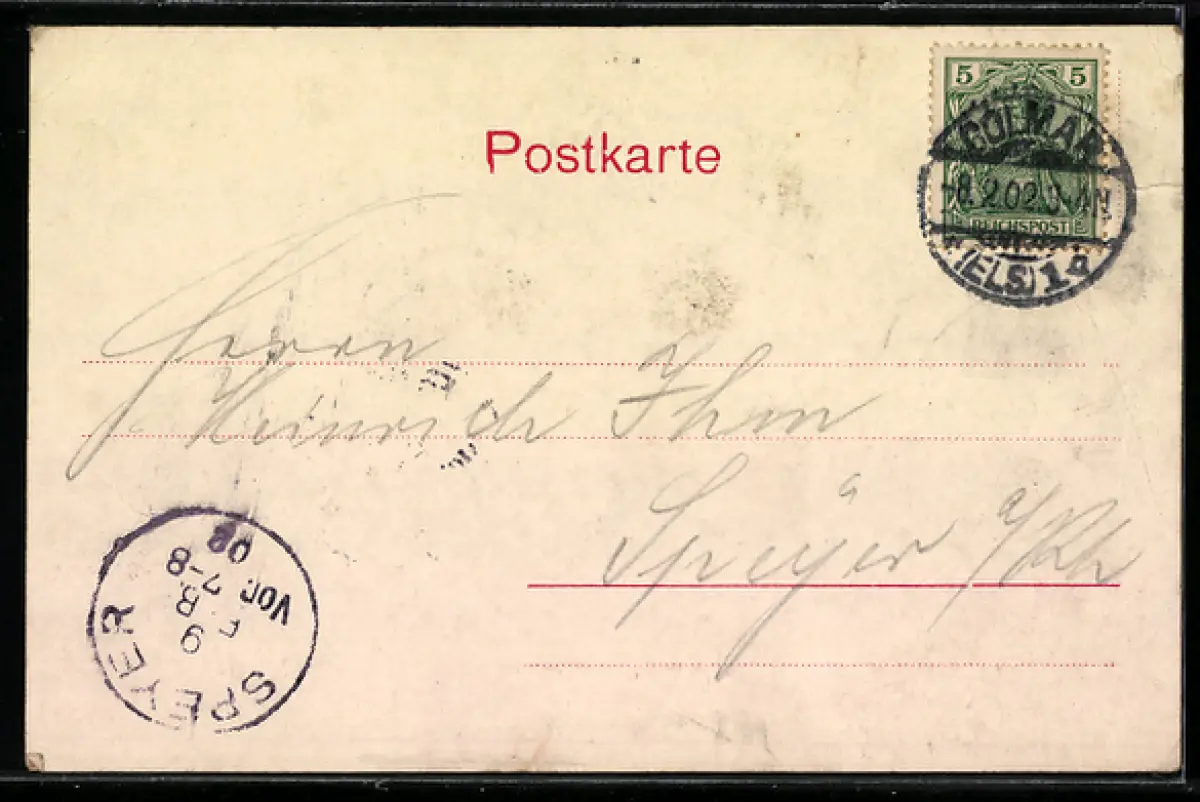 5 5
COLMAR
-8.2.02.
REICHSPOST
(ELS)
Postkarte
Herrn
Heinrich Ihm
Speyer a/Rh
SPEYER
9
FEB.
Vor. 7-8
02